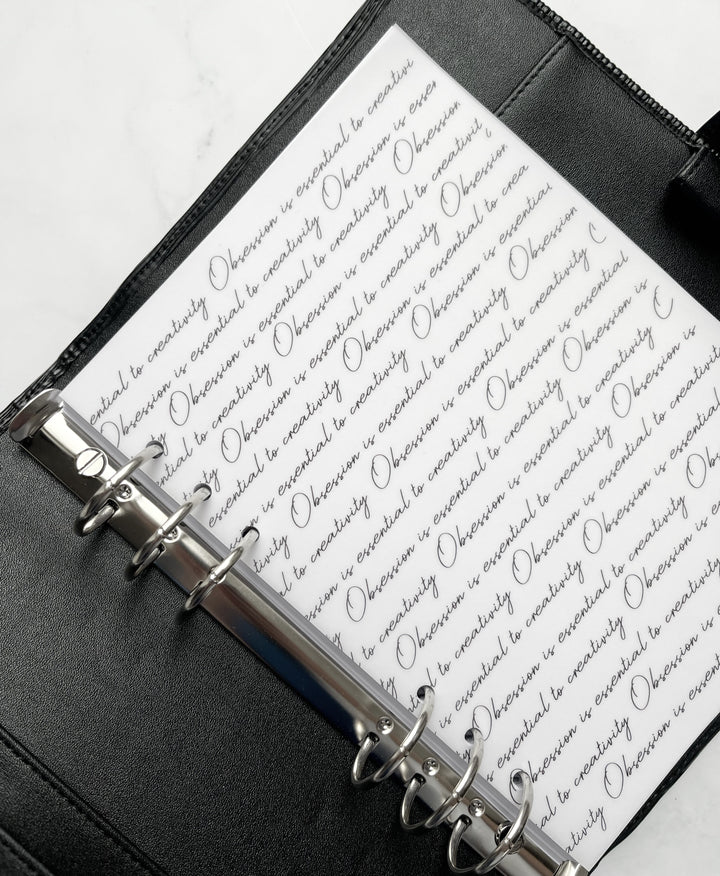 ential to creativity Obsession is essential to creativi
Obsession is essential to creativity Obsession is essen
Obsession is essential to creativity Obsession
ntial to creativity Obsession is essential to creativit
ty Obsession is essential to creativity Obsession
essential to creativity Obsession is essential to crea
is essential to creativity Obsession is essential
ity Obsession is essential to creativity Obsession
l to creativity Obsession is essential to creativity O
ession is essential to creativity Obsession is essential
ity Obsession is essential to creativity Obsession is
to creativity Obsession is essential to creativity O
Obsession is essential to creativity Obsession is
l to creativity Obsession is essential to creativity
is essential to creativity Obsession is essential
Obsession is essential to creativity Obs
essential to creativity Obsession is e
Obsession is essential to creativity
ial to creativity Obsession is
ativity Obsession is essen